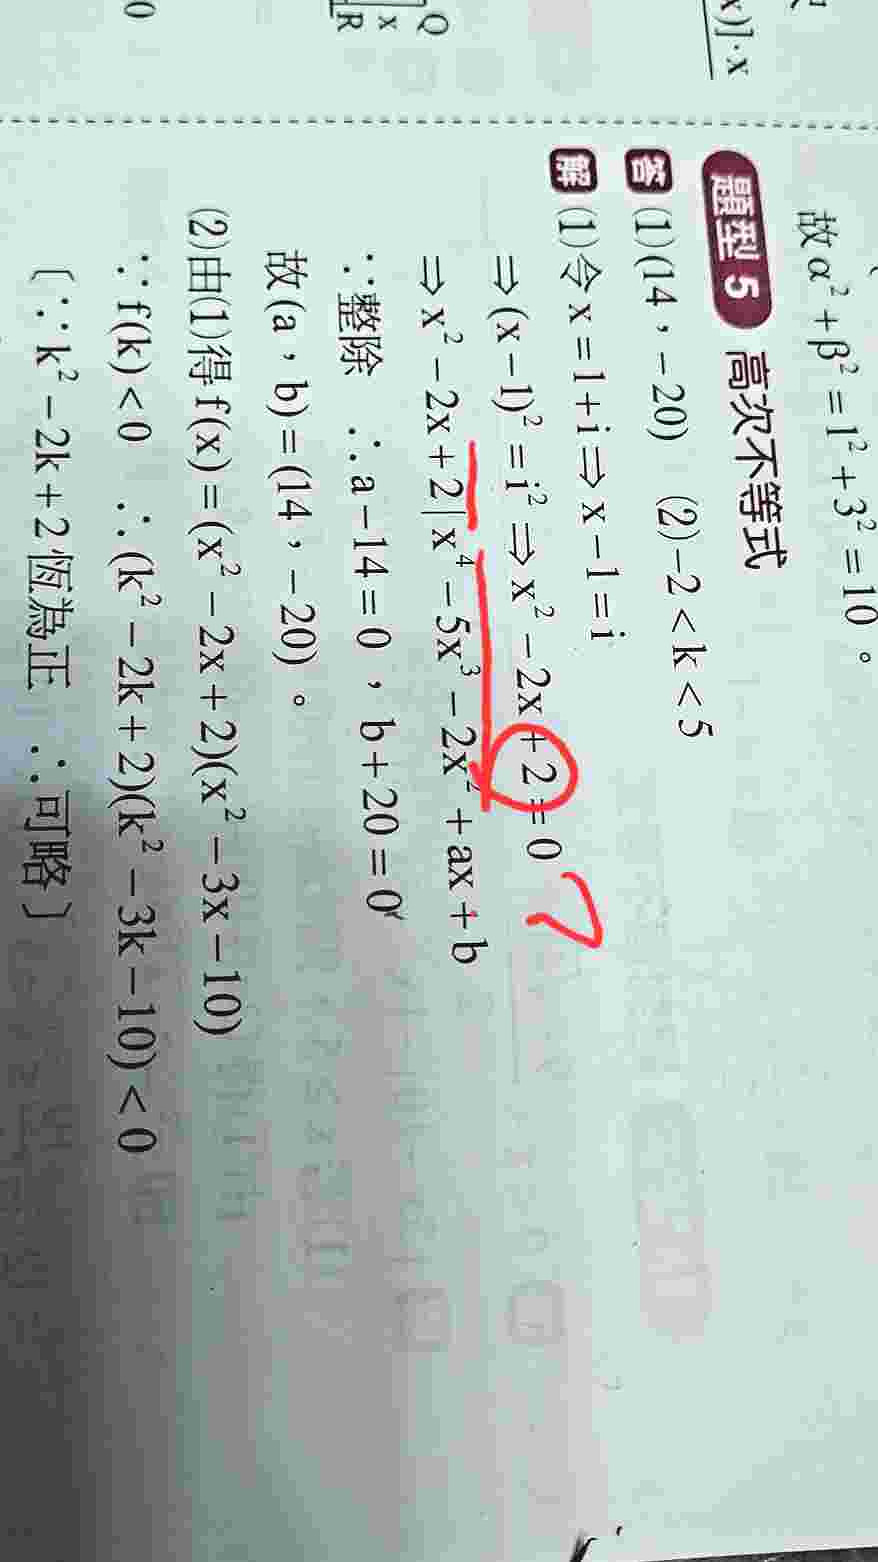 x)]·x
Q
x
R
0
故α²+β²=1²+3²=10。
題型5 高次不等式
答 (1)(14,-20) (2)-2<k<5
解 (1)令x=1+i⇒x-1=i
⇒(x-1)²=i²⇒x²-2x+2=0
⇒x²-2x+2|x⁴-5x³-2x²+ax+b
∵整除 ∴a-14=0,b+20=0
故(a,b)=(14,-20)。
(2)由(1)得f(x)=(x²-2x+2)(x²-3x-10)
∵f(k)<0 ∴(k²-2k+2)(k²-3k-10)<0
〔∵k²-2k+2恆為正 ∴可略〕